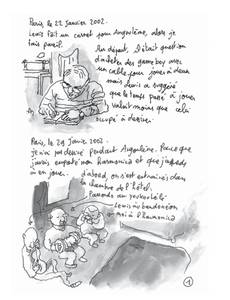 Paris, le 22 janvier 2002.
Lewis fait un carnet pour Angoulême, alors je
fais pareil.
Au départ, il était question
d'acheter des game boy avec
un cable pour jouer à deux
mais Lewis a suggéré
que le temps passé à jouer
valait moins que celui
occupé à dessiner.
Paris, le 29 janvier 2002.
je n'ai pas dessiné pendant Angoulême. Parce que
j'avais emporté mon harmonica et que j'
en jouer. d'abord, on s'est entrainés dans
la chambre de l'hôtel.
au youkoulélé
Lewis au bandonéon
moi à l'harmonica
1